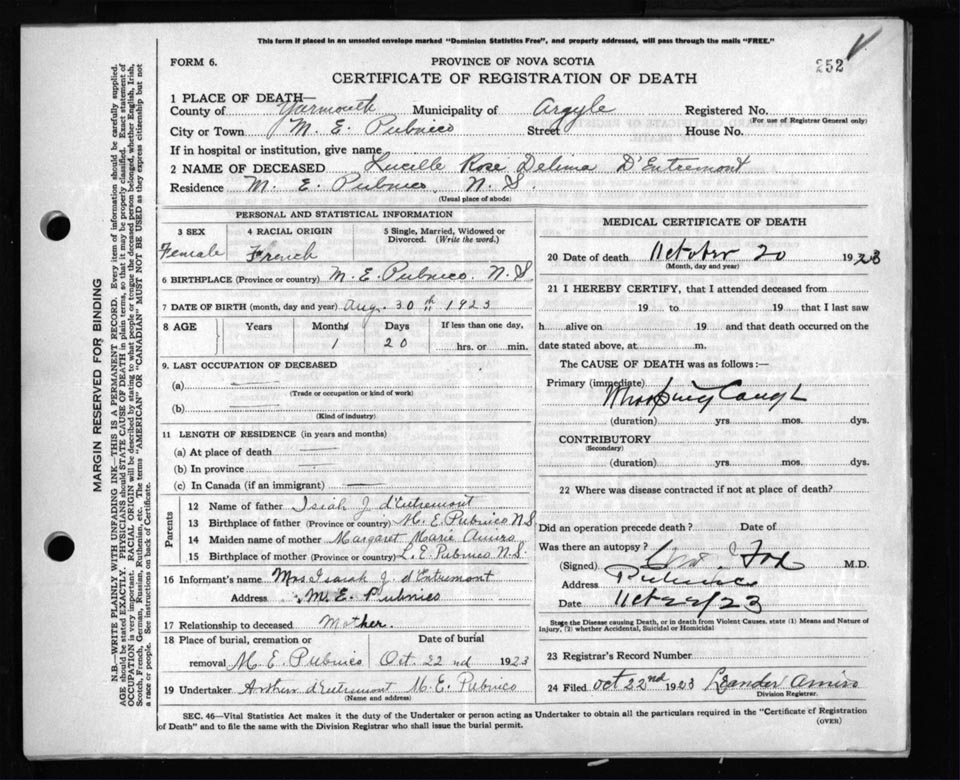 This form if placed in an unsealed envelope marked "Dominion Statistics Free", and properly addressed, will pass through the mails "FREE."
FORM 6.
PROVINCE OF NOVA SCOTIA
252
CERTIFICATE OF REGISTRATION OF DEATH
1 PLACE OF DEATH—
County of Yarmouth Municipality of Argyle Registered No.
(For use of Registrar General only)
City or Town M. E. Pubnico Street House No.
If in hospital or institution, give name
2 NAME OF DECEASED Lucille Rose Delima D'Entremont
Residence M. E. Pubnico, N. S.
(Usual place of abode)
PERSONAL AND STATISTICAL INFORMATION
3 SEX 4 RACIAL ORIGIN 5 Single, Married, Widowed or Divorced. (Write the word.)
Female French
6 BIRTHPLACE (Province or country) M. E. Pubnico, N. S.
7 DATE OF BIRTH (month, day and year) Aug. 30th 1923
8 AGE Years Months Days If less than one day,
1 20 hrs. or min.
9. LAST OCCUPATION OF DECEASED
(a)
(Trade or occupation or kind of work)
(b)
(Kind of industry)
11 LENGTH OF RESIDENCE (in years and months)
(a) At place of death
(b) In province
(c) In Canada (if an immigrant)
Parents
12 Name of father Isiah J d'Entremont
13 Birthplace of father (Province or country) M. E. Pubnico N S
14 Maiden name of mother Margaret Marie Amiro
15 Birthplace of mother (Province or country) L. E. Pubnico N. S.
16 Informant's name Mrs. Isaiah J. d'Entremont
Address M. E. Pubnico
17 Relationship to deceased Mother.
18 Place of burial, cremation or Date of burial
removal M. E. Pubnico Oct. 22nd 1923
19 Undertaker Arthur d'Entremont M. E. Pubnico
(Name and address)
MEDICAL CERTIFICATE OF DEATH
20 Date of death October 20 1923
(Month, day and year)
21 I HEREBY CERTIFY, that I attended deceased from
19 to 19 that I last saw
h alive on 19 and that death occurred on the
date stated above, at m.
The CAUSE OF DEATH was as follows:—
Primary (immediate) Whooping Cough
(duration) yrs. mos. dys.
CONTRIBUTORY
(Secondary)
(duration) yrs. mos. dys.
22 Where was disease contracted if not at place of death?
Did an operation precede death? Date of
Was there an autopsy?
(Signed) Fox M.D.
Address Pubnico
Date Oct 22/23
State the Disease causing Death, or in death from Violent Causes, state (1) Means and Nature of
Injury, (2) whether Accidental, Suicidal or Homicidal
23 Registrar's Record Number
24 Filed Oct 22nd 1923 Leander Amiro
Division Registrar.
SEC. 46—Vital Statistics Act makes it the duty of the Undertaker or person acting as Undertaker to obtain all the particulars required in the "Certificate of Registration
of Death" and to file the same with the Division Registrar who shall issue the burial permit.
(OVER)
MARGIN RESERVED FOR BINDING
N.B.—WRITE PLAINLY WITH UNFADING INK—THIS IS A PERMANENT RECORD. Every item of information should be carefully supplied.
AGE should be stated EXACTLY. PHYSICIANS should STATE CAUSE OF DEATH in plain terms, so that it may be properly classified. Exact statement of
OCCUPATION is very important. RACIAL ORIGIN will be described by stating to what people or tongue the deceased person belonged, whether English, Irish,
Scotch, French, German, Russian, Ruthenian, etc. The terms "AMERICAN" OR "CANADIAN" MUST NOT BE USED as they express citizenship but not
a race or people. See instructions on back of Certificate.